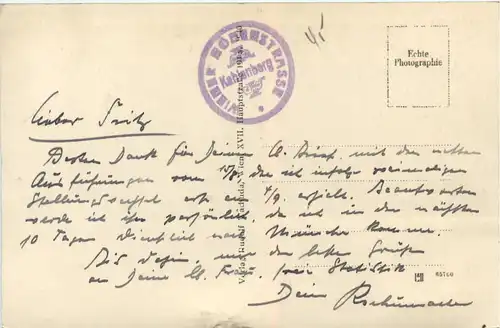 WIENER HÖHENSTRASSE
Kahlenberg
Echte
Photographie
Lieber Fritz
Besten Dank für Deinen lb. Brief mit den netten
Ausführungen vom den ich infolge
Stellungswechsel erst am 4/9. erhielt. Beantworten
werde ich ihn persönlich, da ich in den nächsten
10 Tagen dienstlich nach München komme.
Bis dahin, mit den besten Grüßen
an Deine lb. Frau,
Dein
Wien, XVII, Hauptstrasse